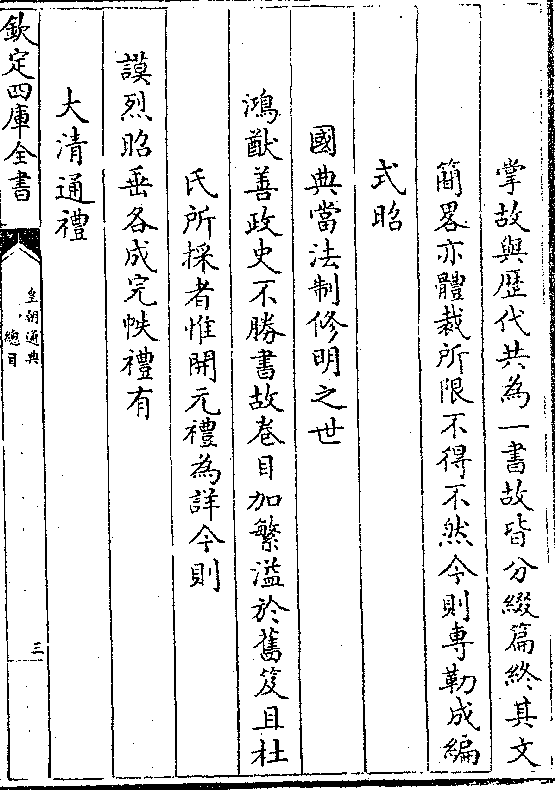 掌故與歴代共為一書故皆分綴篇終其文
簡畧亦體裁所限不得不然今則專勒成編
式昭
國典當法制修明之世
鴻猷善政史不勝書故卷目加繁溢於舊笈且杜
氏所採者惟開元禮為詳今則
謨烈昭垂各成完帙禮有
大清通禮
欽定四庫全書
皇朝通典
總目
三